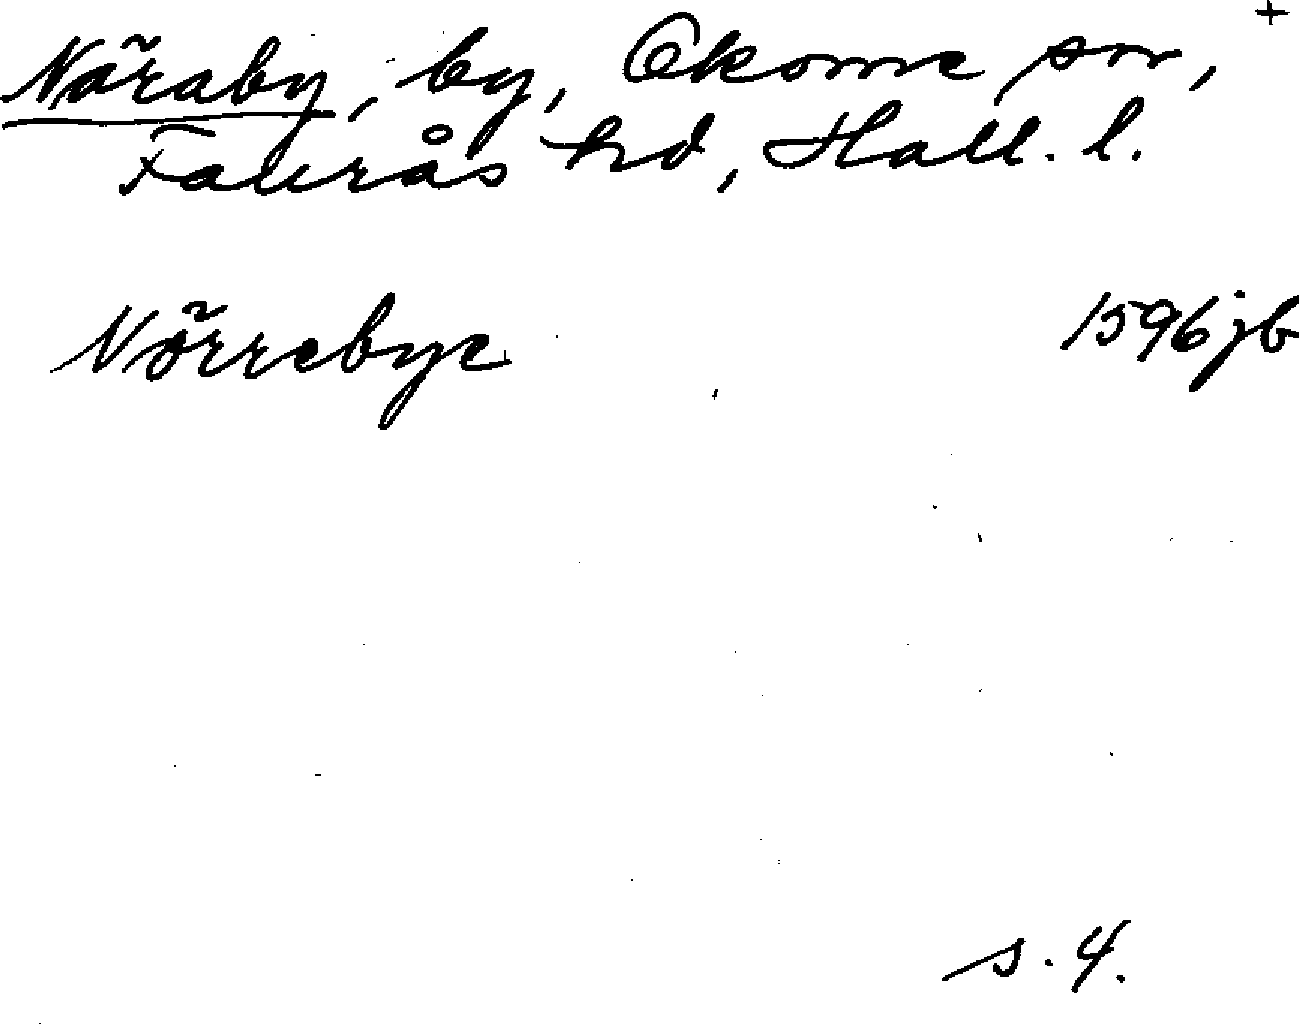 +
Näraby, by, Okome sn,
Faurås hd, Hall. l.
Nörrebye 1596 jb
s. 4.